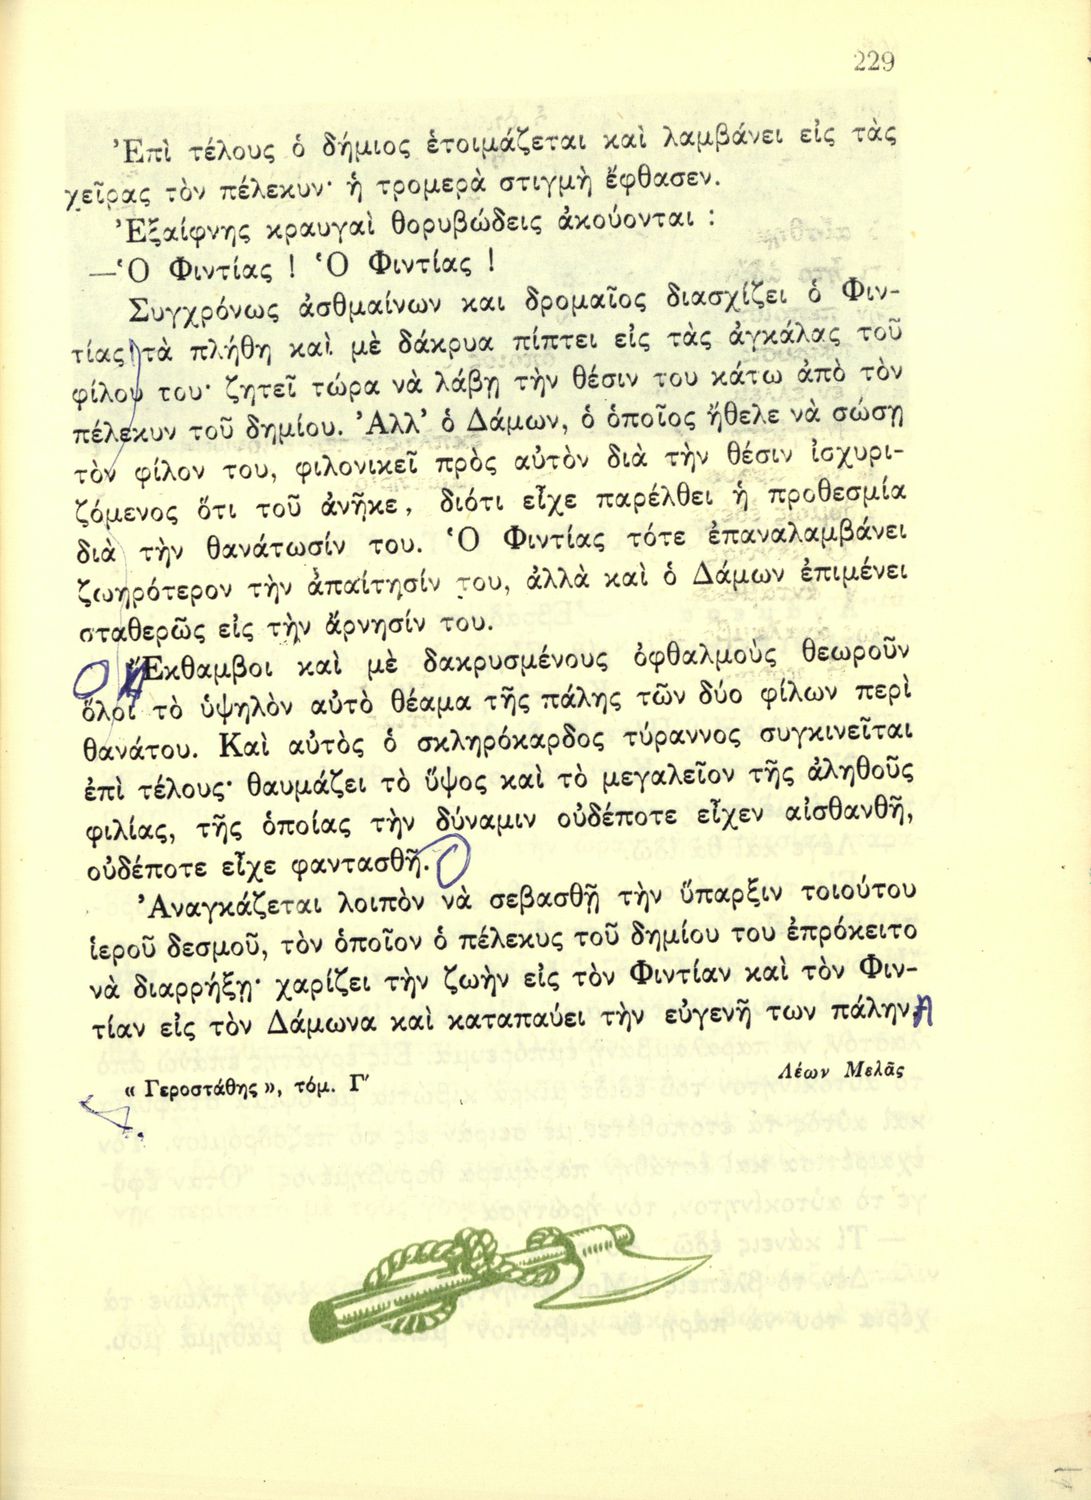 229
Ἐπὶ τέλους ὁ δήμιος ἑτοιμάζεται καὶ λαμβάνει εἰς τὰς
χεῖρας τὸν πέλεκυν· ἡ τρομερὰ στιγμὴ ἔφθασεν.
Ἐξαίφνης κραυγαὶ θορυβώδεις ἀκούονται :
—Ὁ Φιντίας ! Ὁ Φιντίας !
Συγχρόνως ἀσθμαίνων και δρομαῖος διασχίζει ὁ Φιν-
τίας τὰ πλήθη καὶ μὲ δάκρυα πίπτει εἰς τὰς ἀγκάλας τοῦ
φίλου του· ζητεῖ τώρα νὰ λάβῃ τὴν θέσιν του κάτω ἀπὸ τὸν
πέλεκυν τοῦ δημίου. Ἀλλ’ ὁ Δάμων, ὁ ὁποῖος ἤθελε νὰ σώσῃ
τὸν φίλον του, φιλονικεῖ πρὸς αὐτὸν διὰ τὴν θέσιν ἰσχυρι-
ζόμενος ὅτι τοῦ ἀνῆκε, διότι εἶχε παρέλθει ἡ προθεσμία
διὰ τὴν θανάτωσίν του. Ὁ Φιντίας τότε ἐπαναλαμβάνει
ζωηρότερον τὴν ἀπαίτησίν του, ἀλλὰ καὶ ὁ Δάμων ἐπιμένει
σταθερῶς εἰς τὴν ἄρνησίν του.
Ἔκθαμβοι καὶ μὲ δακρυσμένους ὀφθαλμοὺς θεωροῦν
ὅλοι τὸ ὑψηλὸν αὐτὸ θέαμα τῆς πάλης τῶν δύο φίλων περὶ
θανάτου. Καὶ αὐτὸς ὁ σκληρόκαρδος τύραννος συγκινεῖται
ἐπὶ τέλους· θαυμάζει τὸ ὕψος καὶ τὸ μεγαλεῖον τῆς ἀληθοῦς
φιλίας, τῆς ὁποίας τὴν δύναμιν οὐδέποτε εἶχεν αἰσθανθῆ,
οὐδέποτε εἶχε φαντασθῆ.
Ἀναγκάζεται λοιπὸν νὰ σεβασθῇ τὴν ὕπαρξιν τοιούτου
ἱεροῦ δεσμοῦ, τὸν ὁποῖον ὁ πέλεκυς τοῦ δημίου του ἐπρόκειτο
νὰ διαρρήξῃ· χαρίζει τὴν ζωὴν εἰς τὸν Φιντίαν καὶ τὸν Φιν-
τίαν εἰς τὸν Δάμωνα καὶ καταπαύει τὴν εὐγενῆ των πάλην.
« Γεροστάθης », τόμ. Γ΄
Λέων Μελᾶς